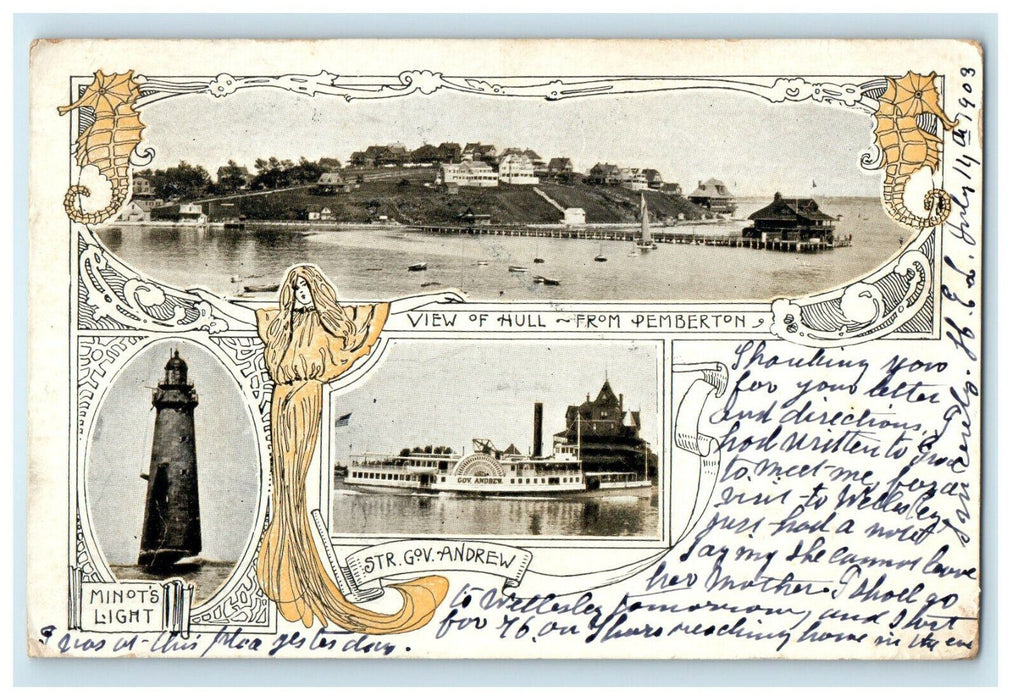 VIEW OF HULL ~ FROM PEMBERTON
MINOT'S
LIGHT
STR. GOV. ANDREW
GOV. ANDREW
Thanking you
for your letter
and directions, I
had written to
to meet me, for a
visit to Wellesley
just had a note
saying she cannot leave
her Mother. I shall go
to Wellesley tomorrow, and start
for on Thurs reaching home in the eve
Sincerely. H. E. L. July 14th 1903
I was at this place yesterday.